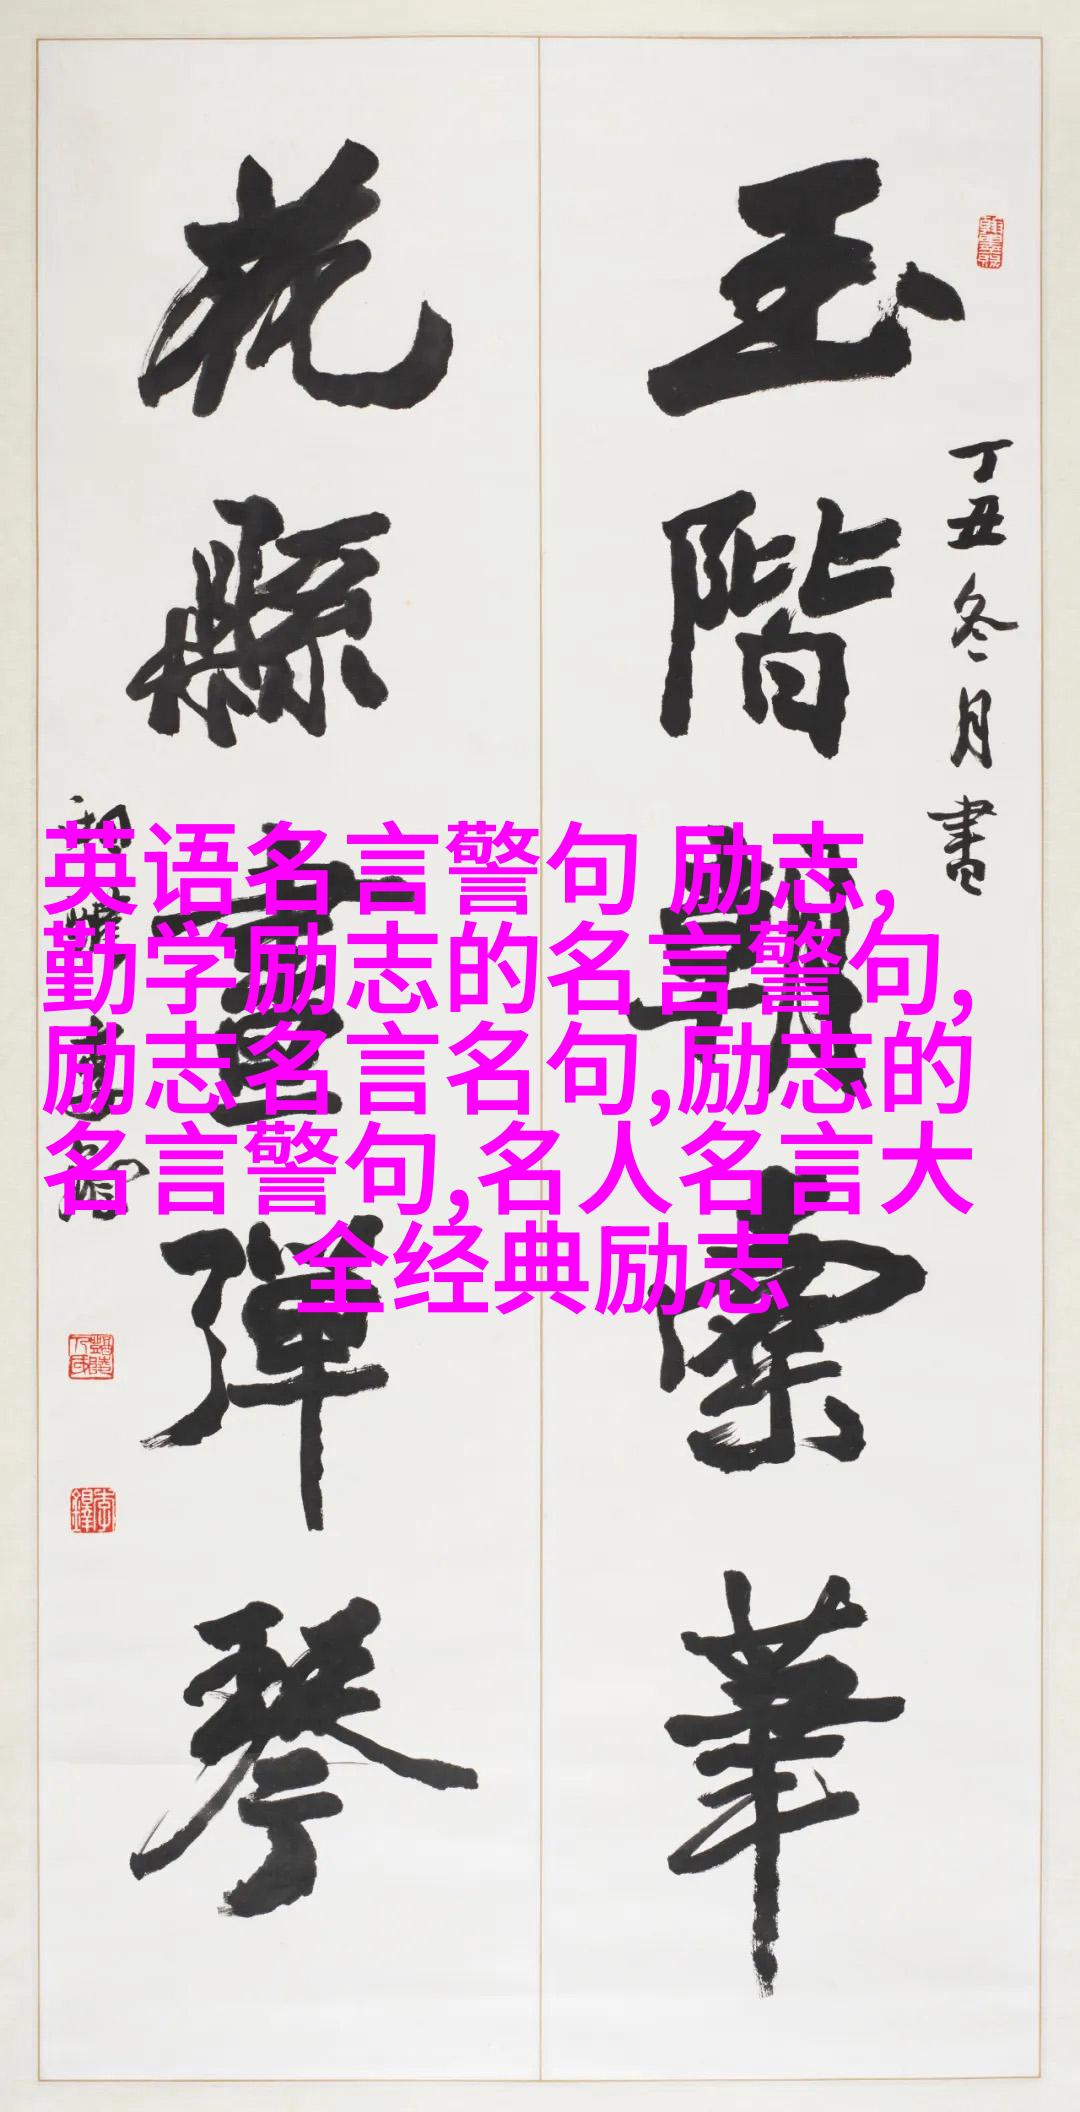 英语名言警句 励志,
勤学励志的名言警句,
励志名言名句,励志的
名言警句,名人名言大
全经典励志
丁丑冬月書
玉階朝華
花縣彈琴